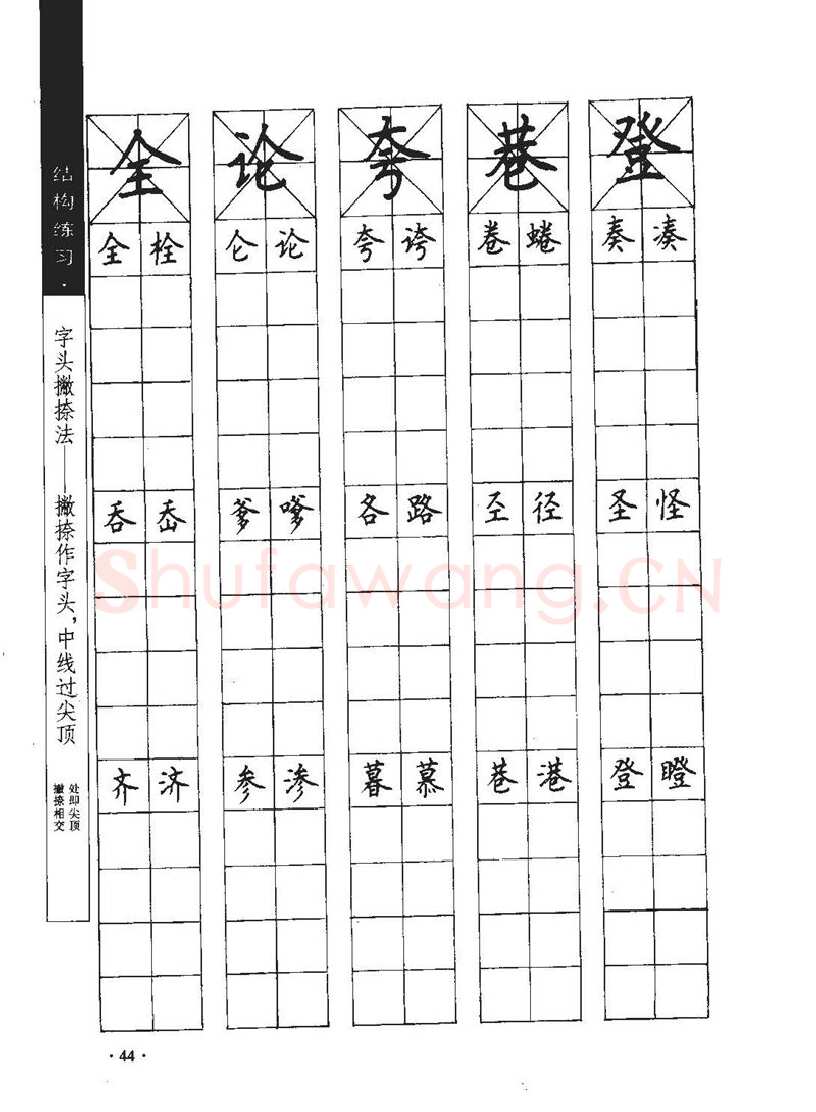 结构练习·
字头撇捺法——撇捺作字头，中线过尖顶
撇捺相交
处即尖顶
全 论 夸 巷 登
全 栓 仑 论 夸 诶 卷 蜷 奏 凑
吞 岙 爹 嗲 各 路 圣 径 圣 怪
齐 济 参 渗 暮 慕 巷 港 登 瞪
Shufawang.CN
·44·